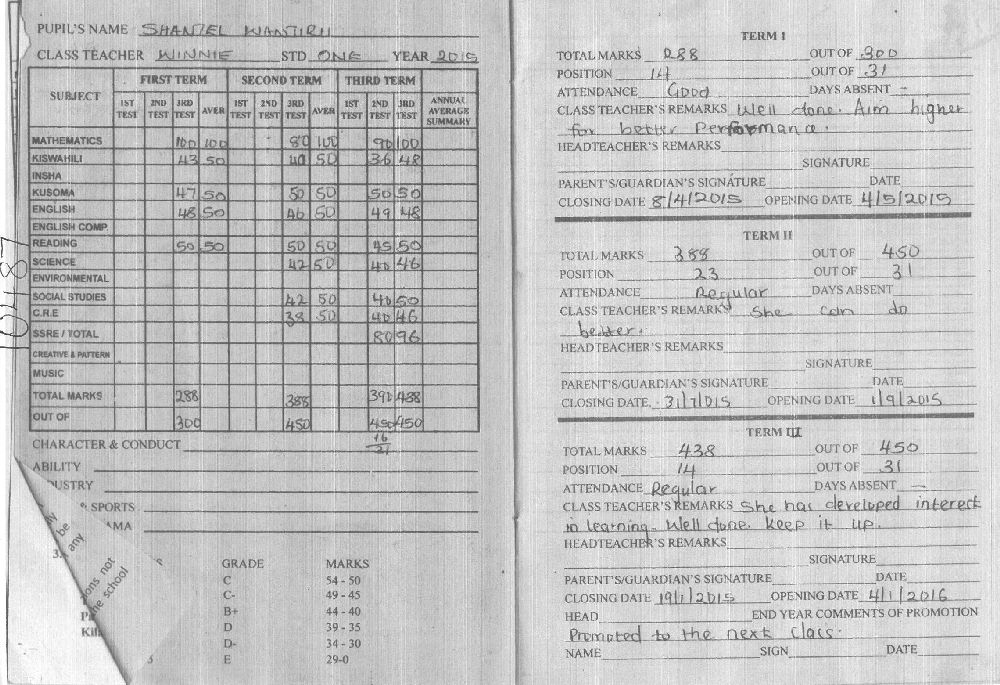 PUPIL'S NAME SHANTEL WANJIRU
CLASS TEACHER WINNIE STD ONE YEAR 2015
SUBJECT FIRST TERM SECOND TERM THIRD TERM
1ST TEST 2ND TEST 3RD TEST AVER 1ST TEST 2ND TEST 3RD TEST AVER 1ST TEST 2ND TEST 3RD TEST ANNUAL AVERAGE SUMMARY
MATHEMATICS 100 100 80 100 90 100
KISWAHILI 43 50 40 50 36 48
INSHA
KUSOMA 47 50 50 50 50 50
ENGLISH 48 50 46 50 49 48
ENGLISH COMP.
READING 50 50 50 50 45 50
SCIENCE 42 50 40 46
ENVIRONMENTAL
SOCIAL STUDIES 42 50 40 50
C.R.E 38 50 40 46
SSRE / TOTAL 80 96
CREATIVE & PATTERN
MUSIC
TOTAL MARKS 288 388 390 488
OUT OF 300 450 450 450
CHARACTER & CONDUCT 16
31
ABILITY
DUSTRY
SPORTS
AMA
10487
be
3. any
ons not
the school
GRADE MARKS
C 54 - 50
C- 49 - 45
B+ 44 - 40
D 39 - 35
D- 34 - 30
E 29-0
TERM I
TOTAL MARKS 288 OUT OF 300
POSITION 14 OUT OF 31
ATTENDANCE Good DAYS ABSENT -
CLASS TEACHER'S REMARKS Well done. Aim higher
for better Performance.
HEADTEACHER'S REMARKS
SIGNATURE
PARENT'S/GUARDIAN'S SIGNATURE DATE
CLOSING DATE 8/4/2015 OPENING DATE 4/5/2015
TERM II
TOTAL MARKS 388 OUT OF 450
POSITION 23 OUT OF 31
ATTENDANCE Regular DAYS ABSENT
CLASS TEACHER'S REMARKS She can do
better.
HEADTEACHER'S REMARKS
SIGNATURE
PARENT'S/GUARDIAN'S SIGNATURE DATE
CLOSING DATE 31/7/015 OPENING DATE 1/9/2015
TERM III
TOTAL MARKS 438 OUT OF 450
POSITION 14 OUT OF 31
ATTENDANCE Regular DAYS ABSENT -
CLASS TEACHER'S REMARKS She has developed interest
in learning. Well done. Keep it up.
HEADTEACHER'S REMARKS
SIGNATURE
PARENT'S/GUARDIAN'S SIGNATURE DATE
CLOSING DATE 19/1/2015 OPENING DATE 4/1/2016
HEAD END YEAR COMMENTS OF PROMOTION
Promoted to the next class.
NAME SIGN DATE